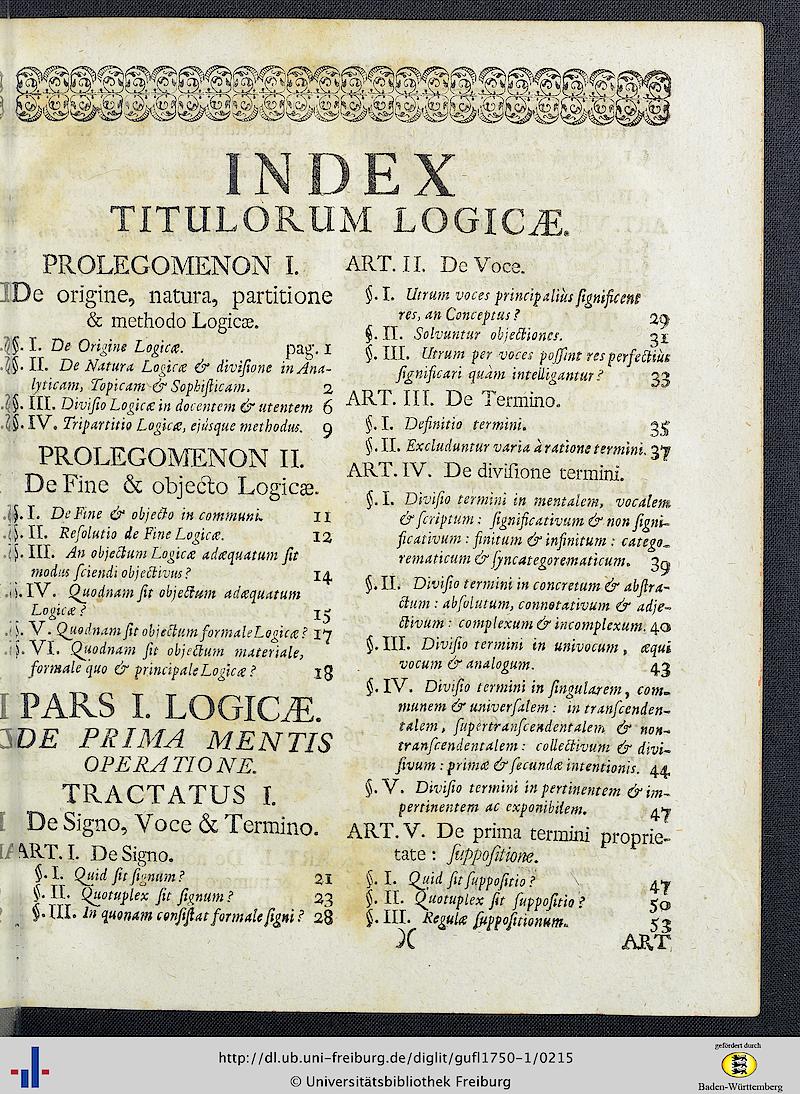 INDEX
TITULORUM LOGICÆ.
PROLEGOMENON I.
De origine, natura, partitione
& methodo Logicæ.
§. I. De Origine Logicæ. pag. 1
§. II. De Natura Logicæ & diviſione in Ana-
lyticam, Topicam & Sophiſticam. 2
§. III. Diviſio Logicæ in docentem & utentem 6
§. IV. Tripartitio Logicæ, ejúsque methodus. 9
PROLEGOMENON II.
De Fine & objecto Logicæ.
§. I. De Fine & objecto in communi. 11
§. II. Reſolutio de Fine Logicæ. 12
§. III. An objectum Logicæ adæquatum ſit
modus ſciendi objectivus? 14
§. IV. Quodnam ſit objectum adæquatum
Logicæ? 15
§. V. Quodnam ſit objectum formale Logicæ? 17
§. VI. Quodnam ſit objectum materiale,
formale quo & principale Logicæ? 18
PARS I. LOGICÆ.
DE PRIMA MENTIS
OPERATIONE.
TRACTATUS I.
De Signo, Voce & Termino.
ART. I. De Signo.
§. I. Quid ſit ſignum? 21
§. II. Quotuplex ſit ſignum? 23
§. III. In quonam conſiſtat formale ſigni? 28
ART. II. De Voce.
§. I. Utrum voces principaliùs ſignificent
res, an Conceptus? 29
§. II. Solvuntur objectiones. 31
§. III. Utrum per voces poſſint res perfectiùs
ſignificari quàm intelligantur? 33
ART. III. De Termino.
§. I. Definitio termini. 35
§. II. Excluduntur varia à ratione termini. 37
ART. IV. De diviſione termini.
§. I. Diviſio termini in mentalem, vocalem
& ſcriptum: ſignificativum & non ſigni-
ficativum: finitum & infinitum: catego-
rematicum & ſyncategorematicum. 39
§. II. Diviſio termini in concretum & abſtra-
ctum: abſolutum, connotativum & adje-
ctivum: complexum & incomplexum. 40
§. III. Diviſio termini in univocum, æqui
vocum & analogum. 43
§. IV. Diviſio termini in ſingularem, com-
munem & univerſalem: in tranſcenden-
talem, ſupertranſcendentalem & non-
tranſcendentalem: collectivum & divi-
ſivum: primæ & ſecundæ intentionis. 44
§. V. Diviſio termini in pertinentem & im-
pertinentem ac exponibilem. 47
ART. V. De prima termini proprie-
tate: ſuppoſitione.
§. I. Quid ſit ſuppoſitio? 47
§. II. Quotuplex ſit ſuppoſitio? 50
§. III. Regulæ ſuppoſitionum. 53
)( ART
http://dl.ub.uni-freiburg.de/diglit/gufl1750-1/0215
© Universitätsbibliothek Freiburg
gefördert durch
Baden-Württemberg